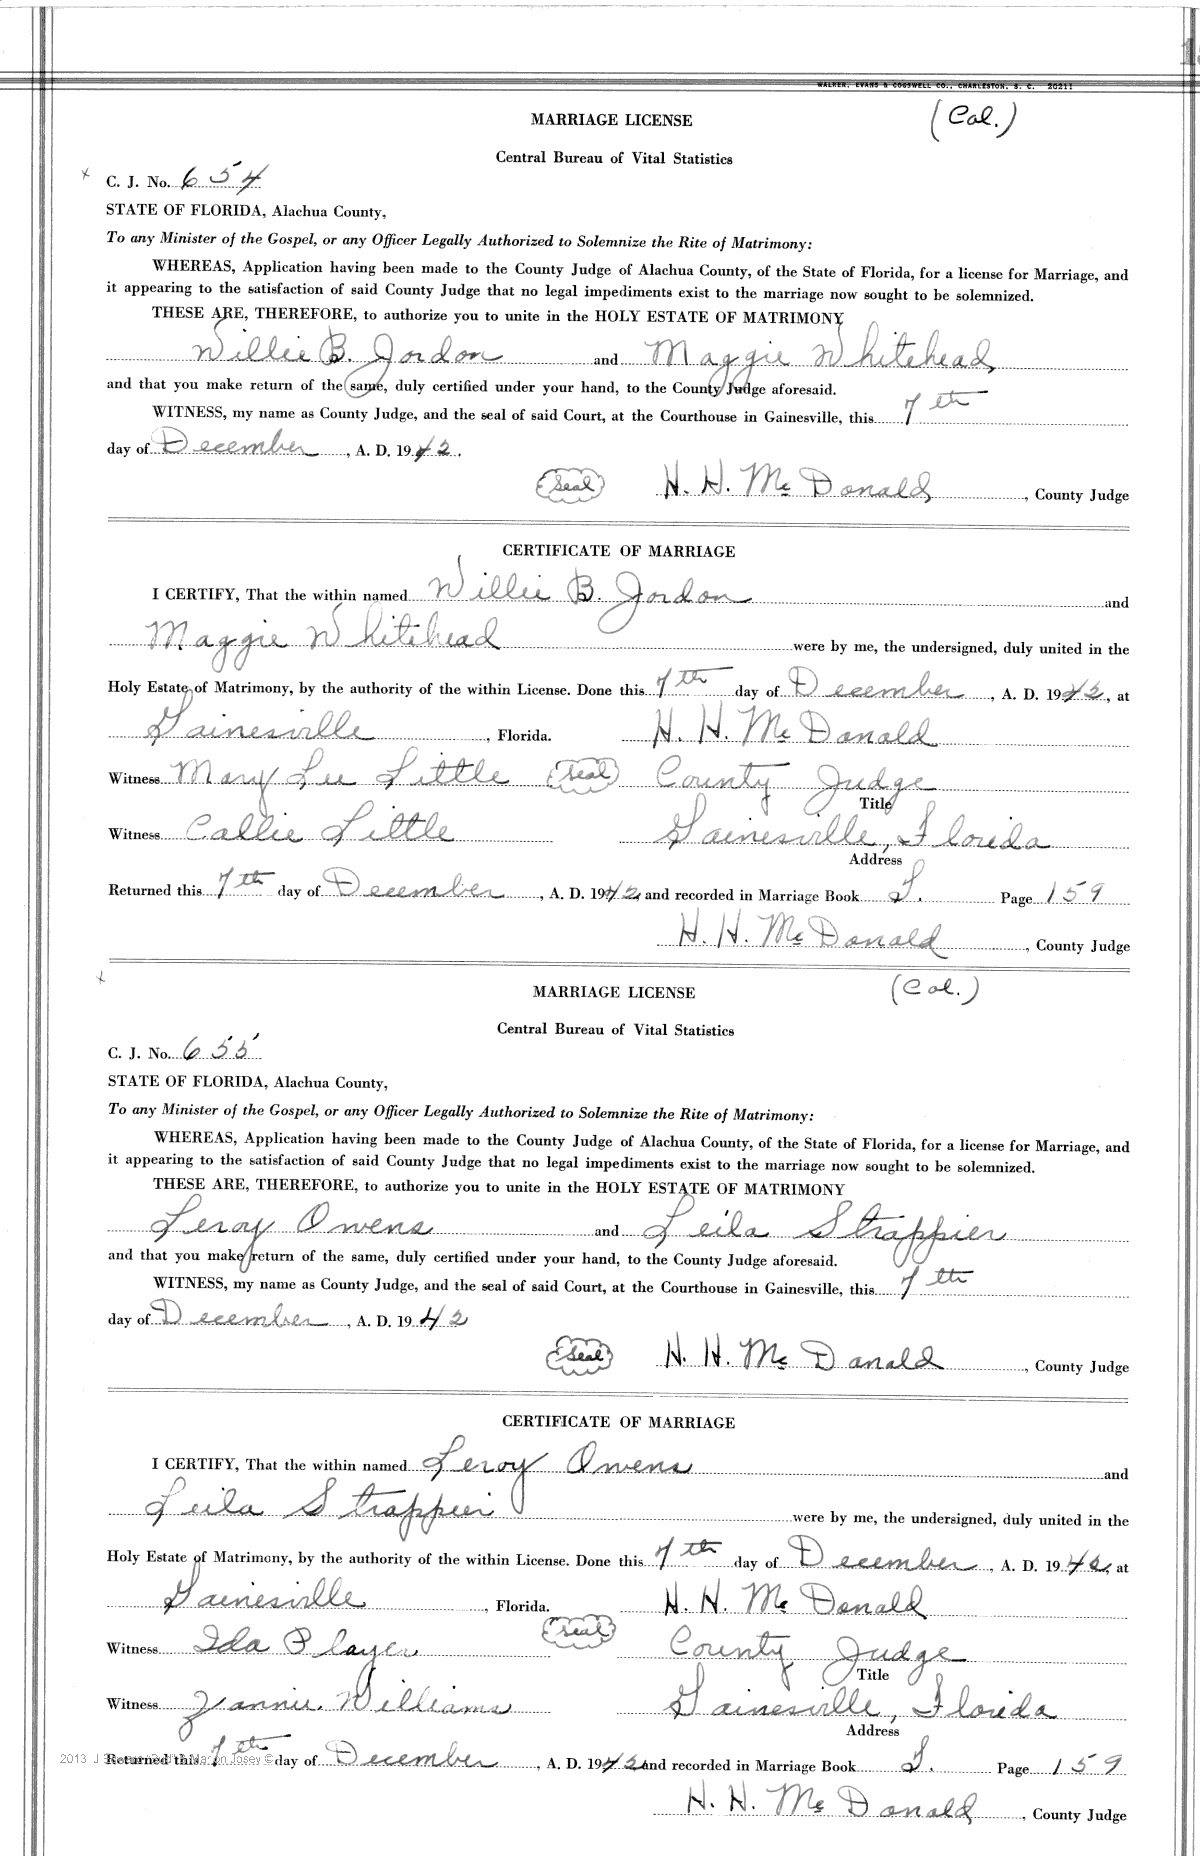 WALKER, EVANS & COGSWELL CO., CHARLESTON, S. C. 20211
MARRIAGE LICENSE (Col.)
Central Bureau of Vital Statistics
x C. J. No. 654
STATE OF FLORIDA, Alachua County,
To any Minister of the Gospel, or any Officer Legally Authorized to Solemnize the Rite of Matrimony:
WHEREAS, Application having been made to the County Judge of Alachua County, of the State of Florida, for a license for Marriage, and
it appearing to the satisfaction of said County Judge that no legal impediments exist to the marriage now sought to be solemnized.
THESE ARE, THEREFORE, to authorize you to unite in the HOLY ESTATE OF MATRIMONY
Willie B. Jordon and Maggie Whitehead,
and that you make return of the same, duly certified under your hand, to the County Judge aforesaid.
WITNESS, my name as County Judge, and the seal of said Court, at the Courthouse in Gainesville, this 7th
day of December, A. D. 1942.
Seal H. H. McDonald, County Judge
CERTIFICATE OF MARRIAGE
I CERTIFY, That the within named Willie B. Jordon and
Maggie Whitehead were by me, the undersigned, duly united in the
Holy Estate of Matrimony, by the authority of the within License. Done this 7th day of December, A. D. 1942, at
Gainesville, Florida. H. H. McDonald
Witness Mary Lee Little Seal County Judge
Title
Witness Callie Little Gainesville, Florida
Address
Returned this 7th day of December, A. D. 1942, and recorded in Marriage Book I. Page 159
H. H. McDonald, County Judge
x
MARRIAGE LICENSE (Col.)
Central Bureau of Vital Statistics
C. J. No. 655
STATE OF FLORIDA, Alachua County,
To any Minister of the Gospel, or any Officer Legally Authorized to Solemnize the Rite of Matrimony:
WHEREAS, Application having been made to the County Judge of Alachua County, of the State of Florida, for a license for Marriage, and
it appearing to the satisfaction of said County Judge that no legal impediments exist to the marriage now sought to be solemnized.
THESE ARE, THEREFORE, to authorize you to unite in the HOLY ESTATE OF MATRIMONY
Leroy Owens and Leila Strappier
and that you make return of the same, duly certified under your hand, to the County Judge aforesaid.
WITNESS, my name as County Judge, and the seal of said Court, at the Courthouse in Gainesville, this 7th
day of December, A. D. 1942
Seal H. H. McDonald, County Judge
CERTIFICATE OF MARRIAGE
I CERTIFY, That the within named Leroy Owens and
Leila Strappier were by me, the undersigned, duly united in the
Holy Estate of Matrimony, by the authority of the within License. Done this 7th day of December, A. D. 1942, at
Gainesville, Florida. H. H. McDonald
Witness Ida Player Seal County Judge
Title
Witness Zannie Williams Gainesville, Florida
Address
Returned this 7th day of December, A. D. 1942 and recorded in Marriage Book I. Page 159
H. H. McDonald, County Judge